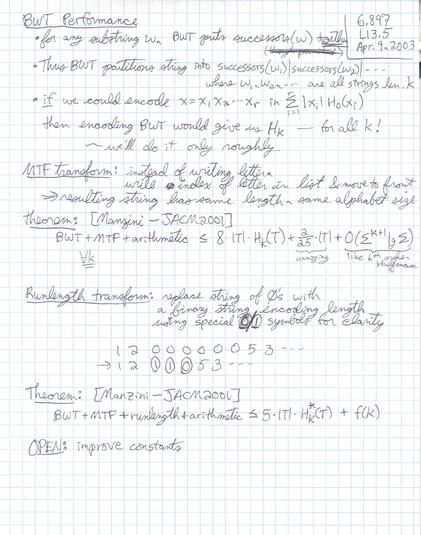 BWT Performance
6.897
L13.5
Apr. 9, 2003
• for any substring w, BWT puts successors(w) together
• Thus BWT partitions string into successors(w₁)|successors(w₂)|---
where w₁, w₂, ... are all strings len. k
• if we could encode x=x₁x₂...xᵣ in Σᵢ₌₁ʳ |xᵢ| H₀(xᵢ)
then encoding BWT would give us Hₖ — for all k!
~ we'll do it only roughly
MTF transform: instead of writing letter,
write index of letter in list & move to front
⇒ resulting string has same length, same alphabet size
Theorem: [Manzini – JACM 2001]
BWT+MTF+arithmetic ≤ 8·|T|·Hₖ(T) + 2/25·|T| + O(Σᵏ⁺¹ lg Σ)
∀k annoying like kth order
Huffman
Runlength transform: replace string of 0's with
a binary string encoding length
using special 0/1 symbols for clarity
1 2 0 0 0 0 0 0 0 5 3 ---
→ 1 2 ① ① ⓪ 5 3 ---
Theorem: [Manzini – JACM 2001]
BWT+MTF+runlength+arithmetic ≤ 5·|T|·Hₖ*(T) + f(k)
OPEN: improve constants